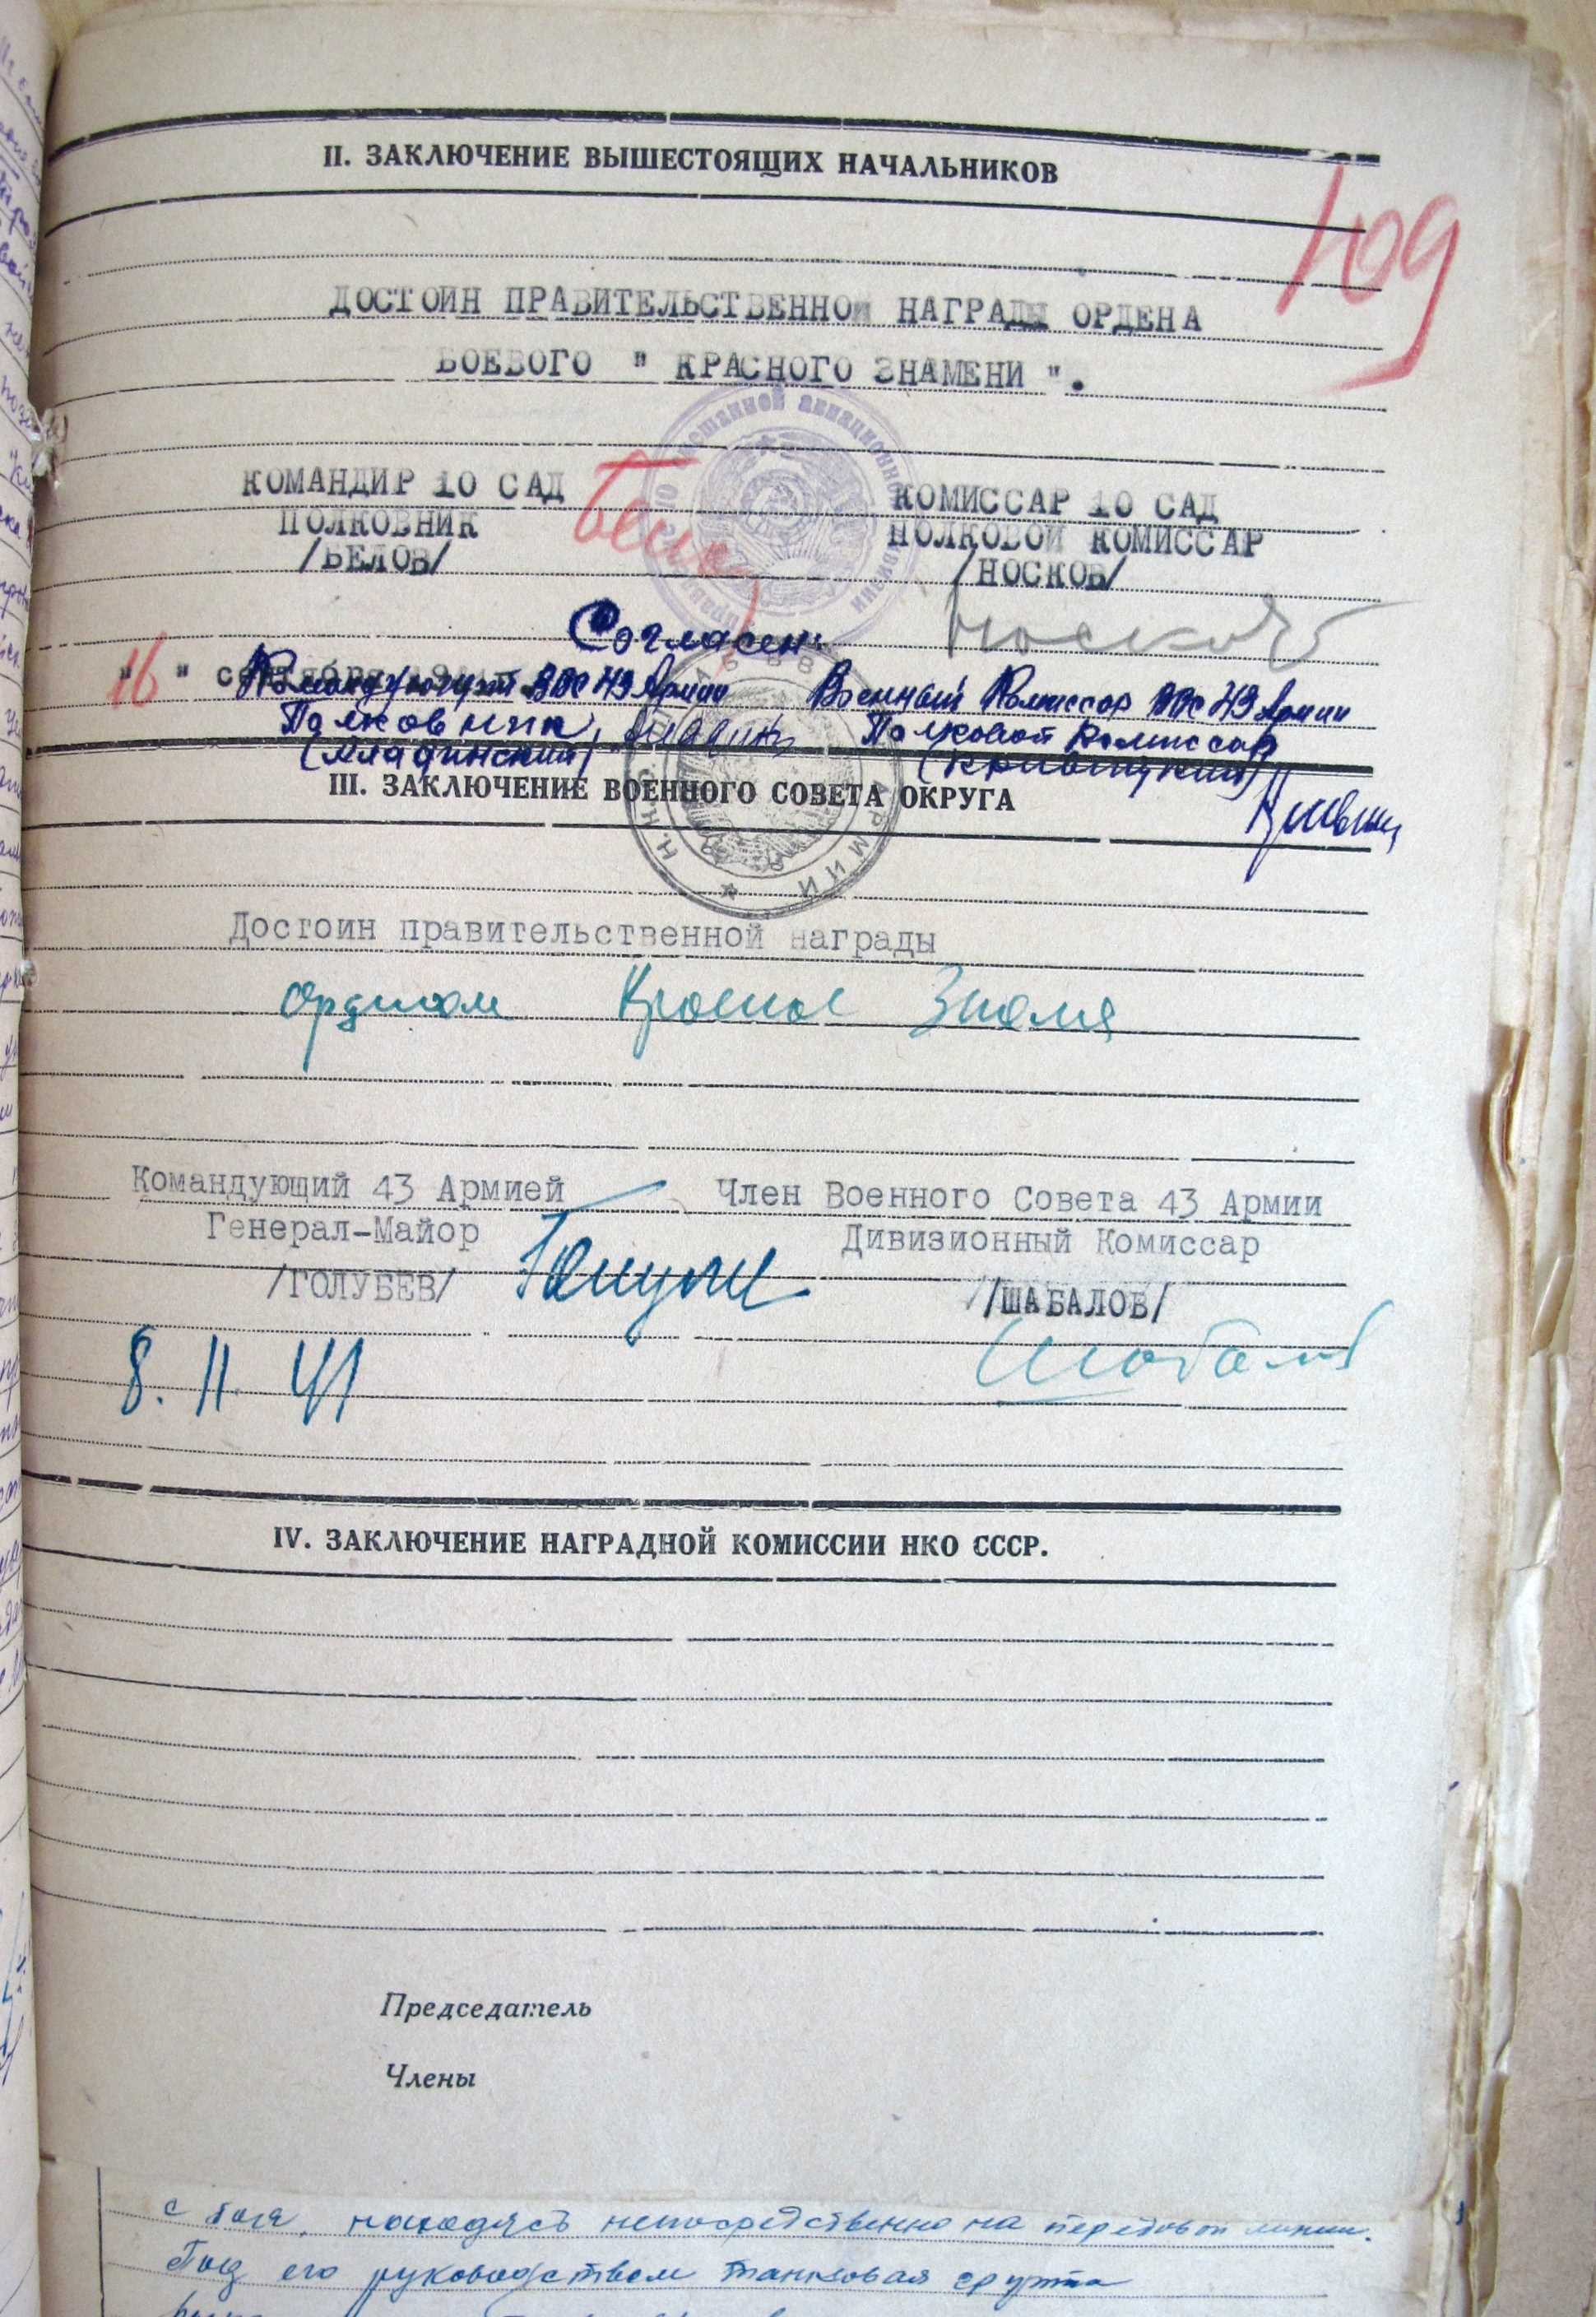 II. ЗАКЛЮЧЕНИЕ ВЫШЕСТОЯЩИХ НАЧАЛЬНИКОВ
109
ДОСТОИН ПРАВИТЕЛЬСТВЕННОЙ НАГРАДЫ ОРДЕНА
БОЕВОГО " КРАСНОГО ЗНАМЕНИ ".
КОМАНДИР 10 САД
ПОЛКОВНИК
/БЕЛОВ/
КОМИССАР 10 САД
ПОЛКОВОЙ КОМИССАР
/НОСКОВ/
Носков
Согласен:
" 16 " сентября
Командующий ВВС 43 Армии
Полковник
Военный Комиссар ВВС 43 Армии
Полковой Комиссар
III. ЗАКЛЮЧЕНИЕ ВОЕННОГО СОВЕТА ОКРУГА
Достоин правительственной награды
орденом Красное Знамя
Командующий 43 Армией
Генерал-Майор
/ГОЛУБЕВ/
Член Военного Совета 43 Армии
Дивизионный Комиссар
/ШАБАЛОВ/
Шабалов
8. 11. 41
IV. ЗАКЛЮЧЕНИЕ НАГРАДНОЙ КОМИССИИ НКО СССР.
Председатель
Члены
с боя, находясь непосредственно на передовой линии.
Под его руководством танковая группа